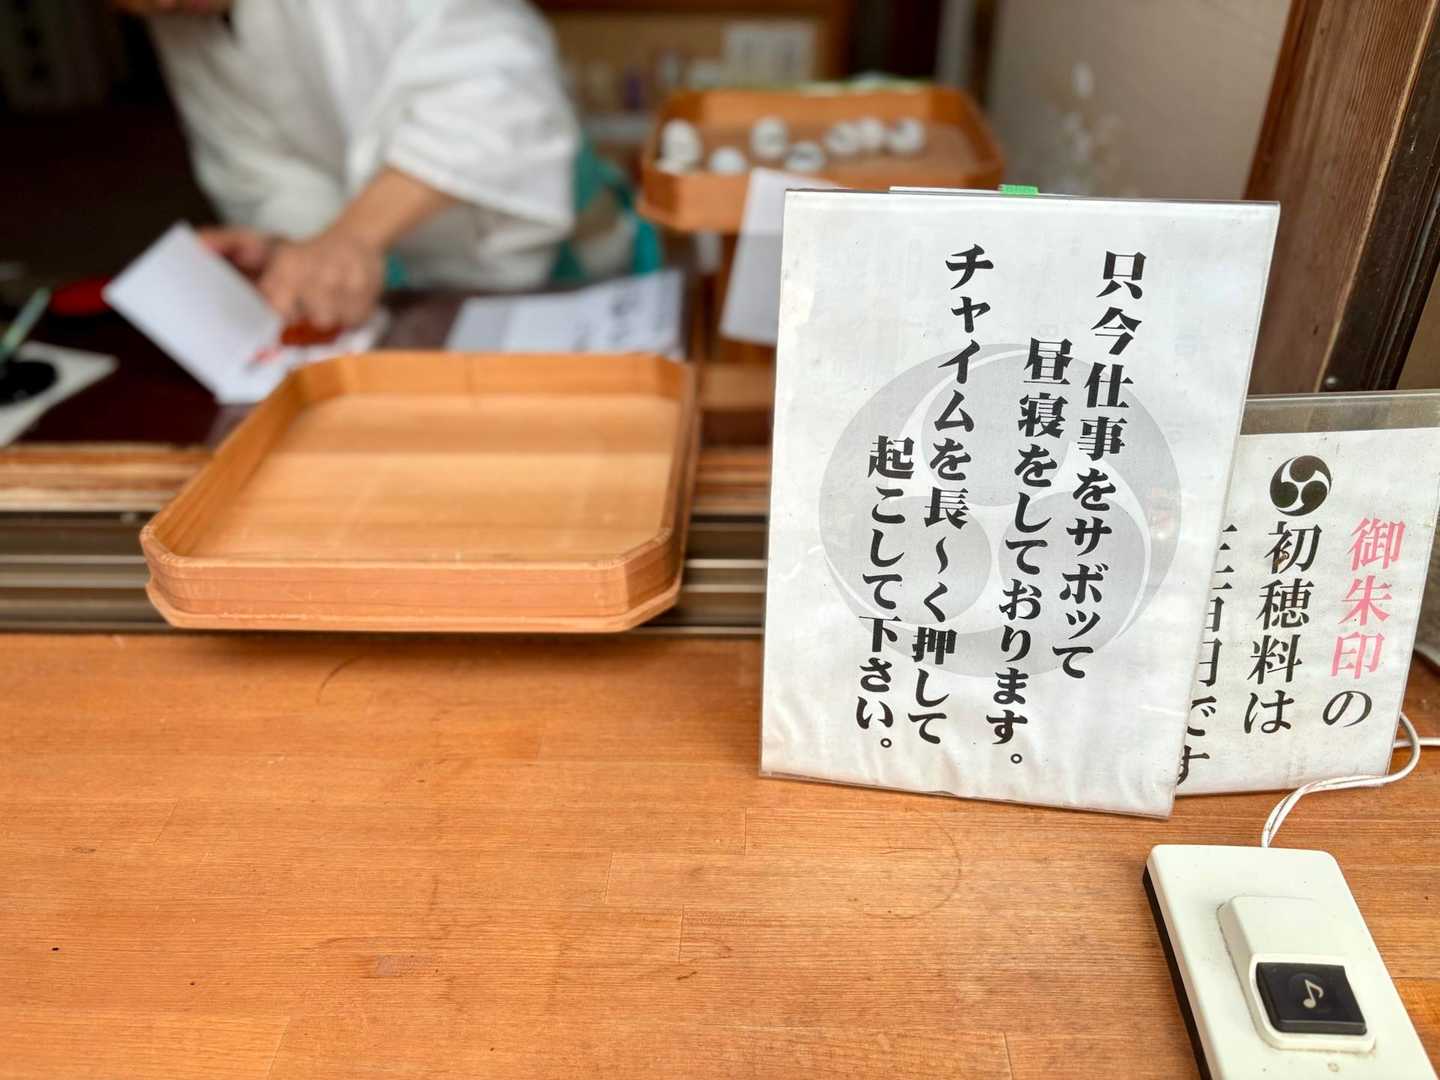 只今仕事をサボッて
昼寝をしております。
チャイムを長～く押して
起こして下さい。
御朱印の
初穂料は
です